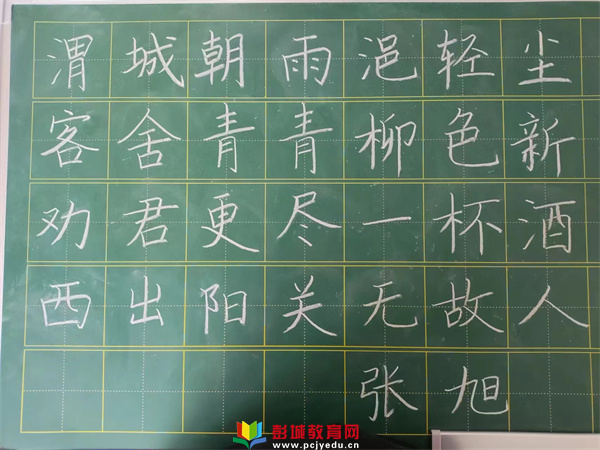 渭城朝雨浥轻尘
客舍青青柳色新
劝君更尽一杯酒
西出阳关无故人
张旭
彭城教育网
www.pcjyedu.cn